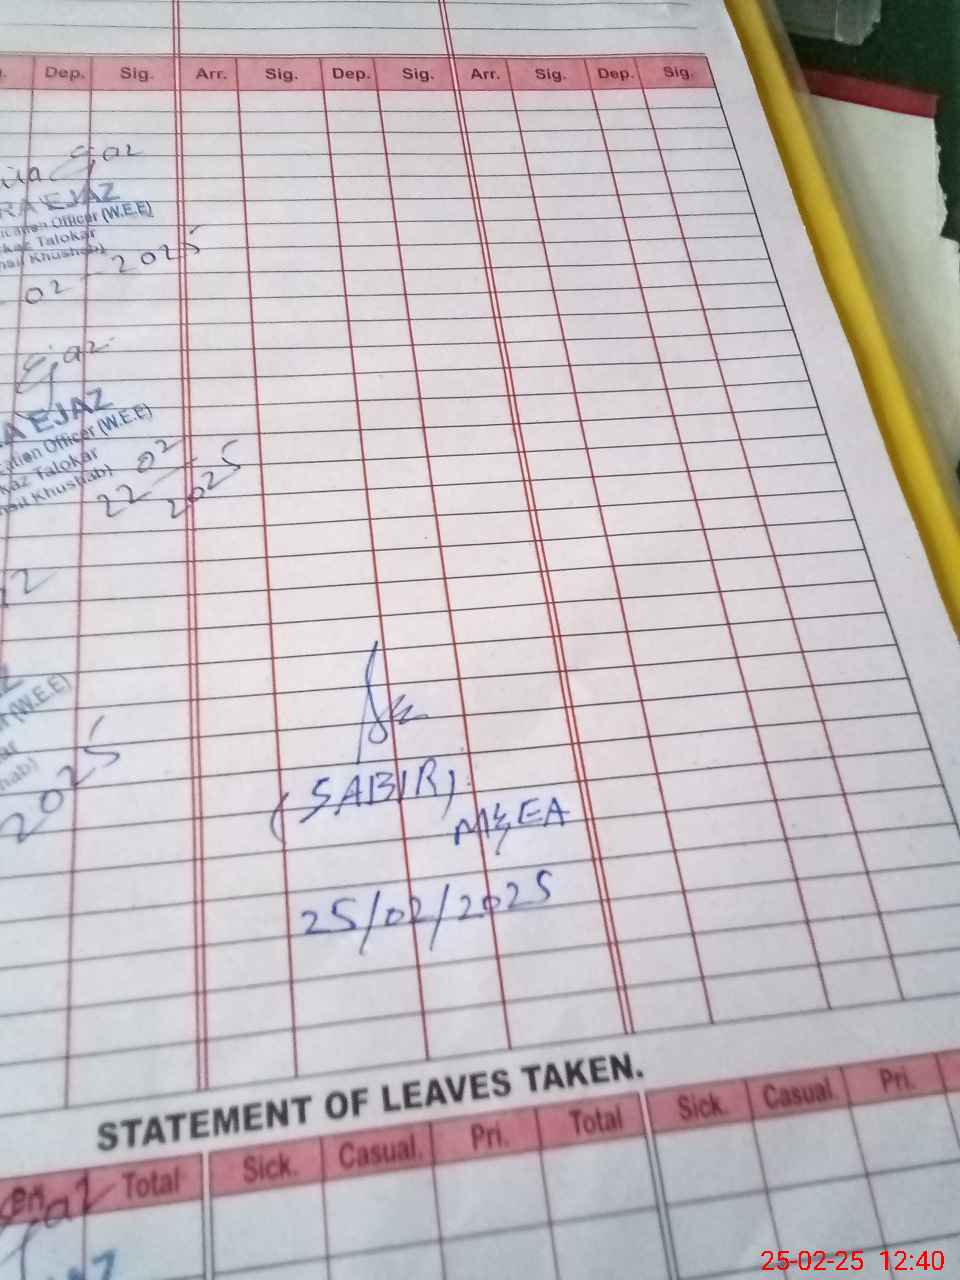 Dep. Sig. Arr. Sig. Dep. Sig. Arr. Sig. Dep. Sig.
Ejaz
RA EJAZ
Officer (W.E.E)
kaz Talokar
Khushab)
02 - 2025
Ejaz
A EJAZ
Officer (W.E.E)
kaz Talokar
Khushab)
22 - 02 - 2025
(W.E.E)
2025
(SABIR)
M&EA
25/02/2025
STATEMENT OF LEAVES TAKEN.
Pri. Total Sick. Casual. Pri. Total Sick. Casual. Pri.
25-02-25 12:40